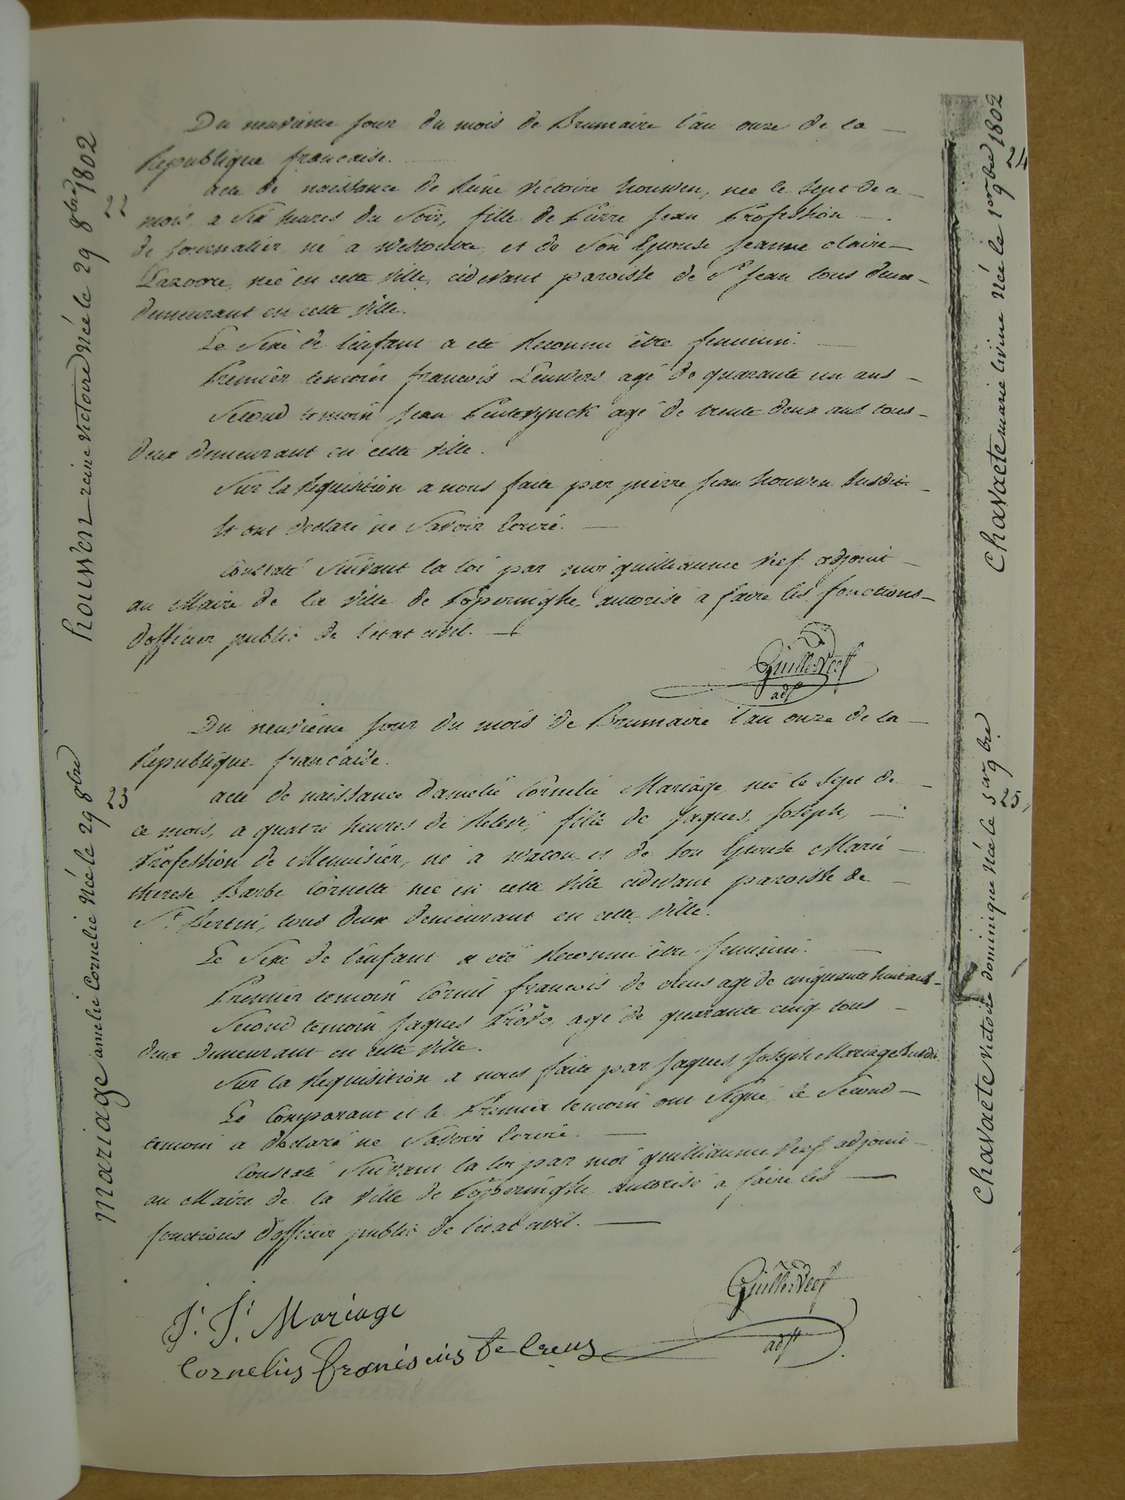 houwen reine victoire Née le 29 8bre 1802
22
Du neuvieme jour du mois de Brumaire l'an onze de la
Republique francaise.
acte de naissance de Reine Victoire houwen, née le sept de ce
mois a six heures du soir, fille de Pierre Jean Profession
de journalier né a Westoutre, et de son Epouse Jeanne claire
née en cette ville, cidevant paroisse de St Jean tous deux
demeurant en cette ville.
Le Sexe de l'enfant a eté Reconnu être feminin.
Premier temoin francois Leuwers agé de quarante un ans
Second temoin Jean agé de trente deux ans tous
deux demeurant en cette ville.
Sur la Requisition a nous faite par pierre Jean houwen susdit
Et ont declaré ne Savoir Ecrire.
Constaté Suivant la loi par moi guilliaume Veef adjoint
au Maire de la Ville de Poperinghe, autorisé a faire les fonctions
d'officier public de l'etat civil.
Guille Veef
adjt
Mariage amelie Cornelie Née le 29 8bre
23
Du neuvieme jour du mois de Brumaire l'an onze de la
Republique francaise.
acte de naissance d'amelie Cornelie Mariage née le sept de
ce mois, a quatre heures de Relevé, fille de Jaques Joseph,
Profession de Menuisier, né a Watou et de Son Epouse Marie
therese Barbe Cornette née en cette ville cidevant paroisse de
St Bertin, tous deux demeurant en cette ville.
Le Sexe de l'enfant a eté Reconnu être feminin.
Premier temoin Cornil francois de creus agé de cinquante huit ans
Second temoin Jaques Provo, agé de quarante cinq tous
deux demeurant en cette Ville.
Sur la Requisition a nous faite par Jaques Joseph Mariage Susdit
Le Comparant et le Premier temoin ont Signé, le Second
temoin a declaré ne Savoir Ecrire.
Constaté Suivant la loi par moi guilliaume Veef adjoint
au Maire de la Ville de Poperinghe autorisé a faire les
fonctions d'officier public de l'etat civil.
J. J. Mariage
Cornelius Franciscus De Creus
Guille Veef
adjt
Chavaete marie livine Née le 1er 9bre 1802
24
Chavaete victoire dominique Née le 5er 9bre
25